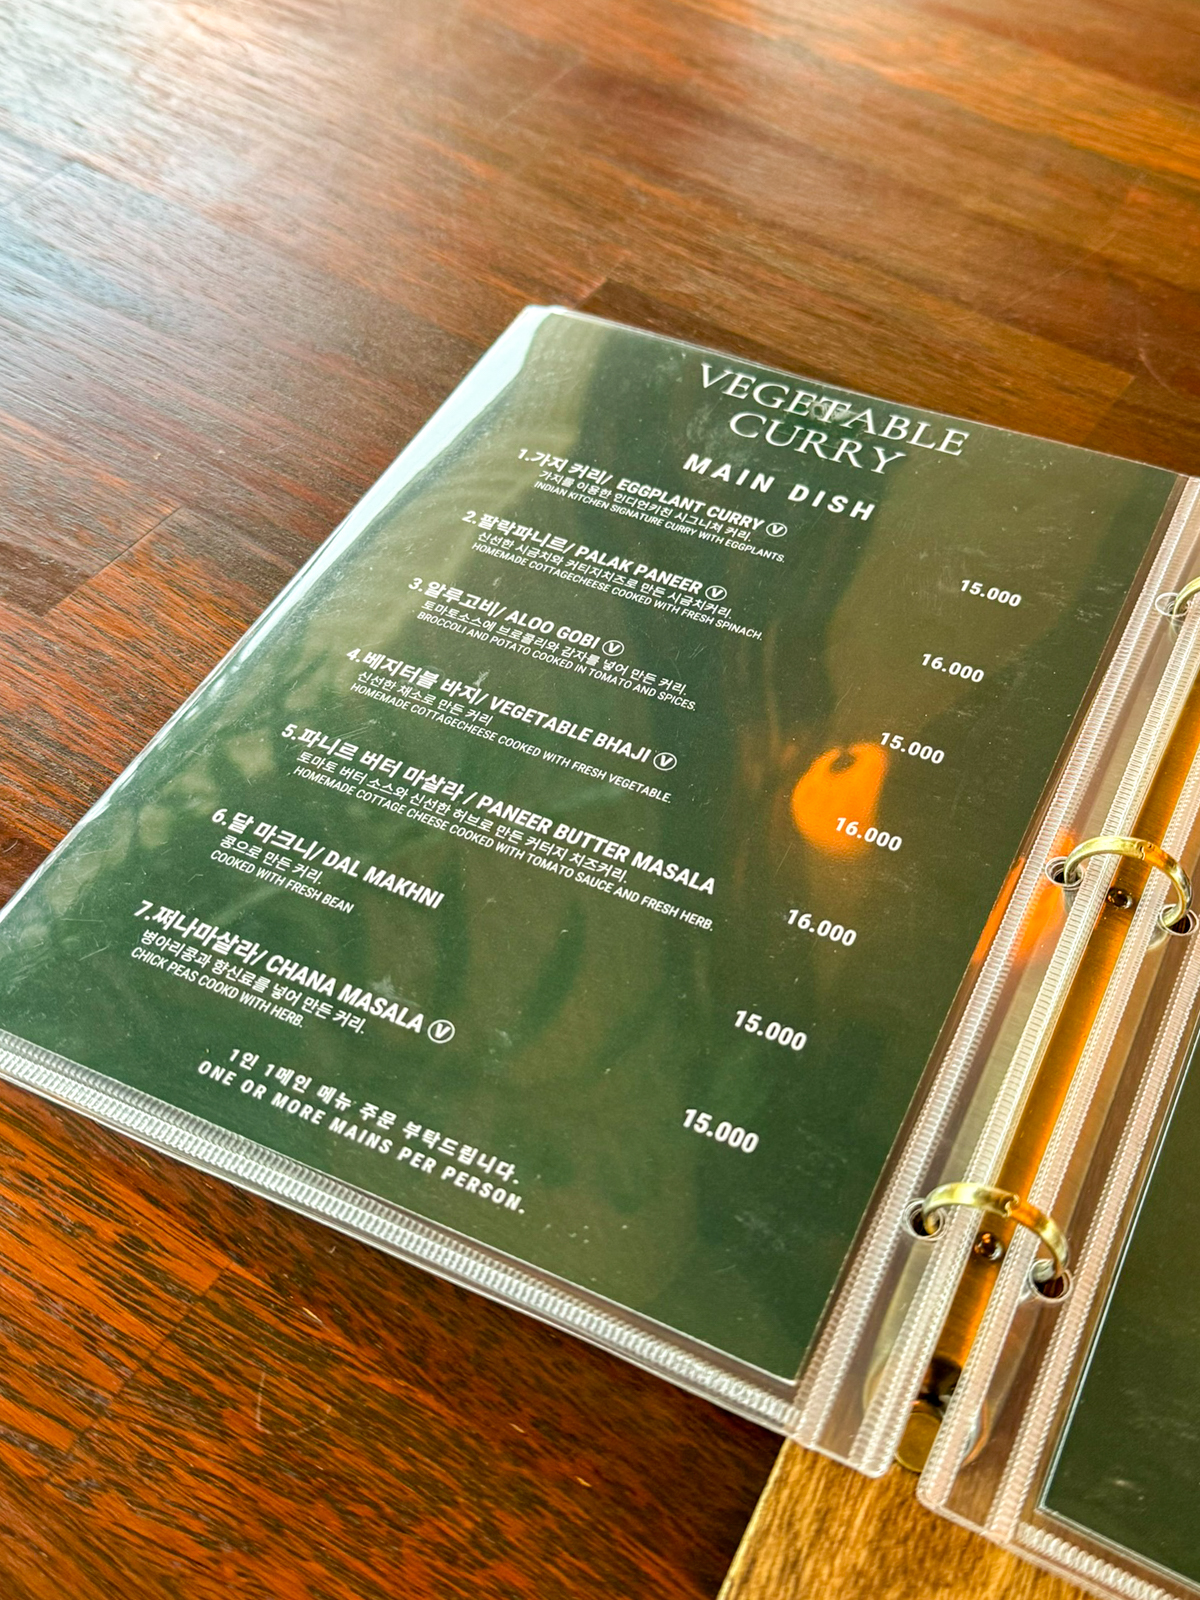 VEGETABLE
CURRY
MAIN DISH
1.가지 커리/ EGGPLANT CURRY Ⓥ
가지를 이용한 인디언키친 시그니쳐 커리.
INDIAN KITCHEN SIGNATURE CURRY WITH EGGPLANTS.
15.000
2.팔락파니르/ PALAK PANEER Ⓥ
신선한 시금치와 커티지치즈로 만든 시금치커리.
HOMEMADE COTTAGECHEESE COOKED WITH FRESH SPINACH.
16.000
3.알루고비/ ALOO GOBI Ⓥ
토마토소스에 브로콜리와 감자를 넣어 만든 커리.
BROCCOLI AND POTATO COOKED IN TOMATO AND SPICES.
15.000
4.베지터블 바지/ VEGETABLE BHAJI Ⓥ
신선한 채소로 만든 커리
HOMEMADE COTTAGECHEESE COOKED WITH FRESH VEGETABLE.
16.000
5.파니르 버터 마살라 / PANEER BUTTER MASALA
토마토 버터 소스와 신선한 허브로 만든 커터지 치즈커리.
HOMEMADE COTTAGE CHEESE COOKED WITH TOMATO SAUCE AND FRESH HERB.
16.000
6.달 마크니/ DAL MAKHNI
콩으로 만든 커리.
COOKED WITH FRESH BEAN
15.000
7.쩌나마살라/ CHANA MASALA Ⓥ
병아리콩과 향신료를 넣어 만든 커리.
CHICK PEAS COOKD WITH HERB.
15.000
1인 1메인 메뉴 주문 부탁드립니다.
ONE OR MORE MAINS PER PERSON.